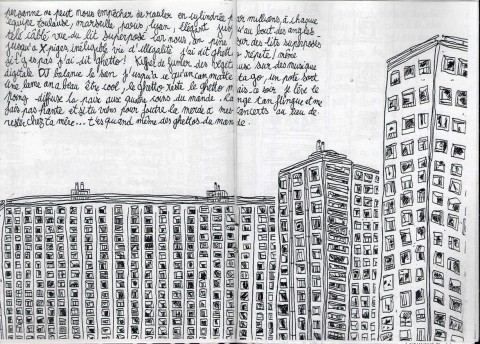 personne ne peut nous empêcher de rouler en cylindrée par millions, à chaque
équipe toulouse, marseille paris, lyon, élégant jusqu'au bout des angles
télé câblé vue du lit superposé car nous, on pine sur des lits superposés
jusqu'à piger inéligible vie d'illégalité j'ai dit ghetto répète! même
si t'es pas j'ai dit ghetto! de fumer des sur des musique
digitale DJ balance le son. J'usqu'à ce qu'un can matte ta go, un pote sort
une lame on a beau être cool, le ghetto reste le ghetto mais ce soir je lève le
poing diffuse la paix aux quatre coins du monde. range ton flingue et me
fais pas honte et si tu viens pour foutre la merde à mes concerts au lieu de
rester chez ta mère... t'es quand même des ghettos du monde.